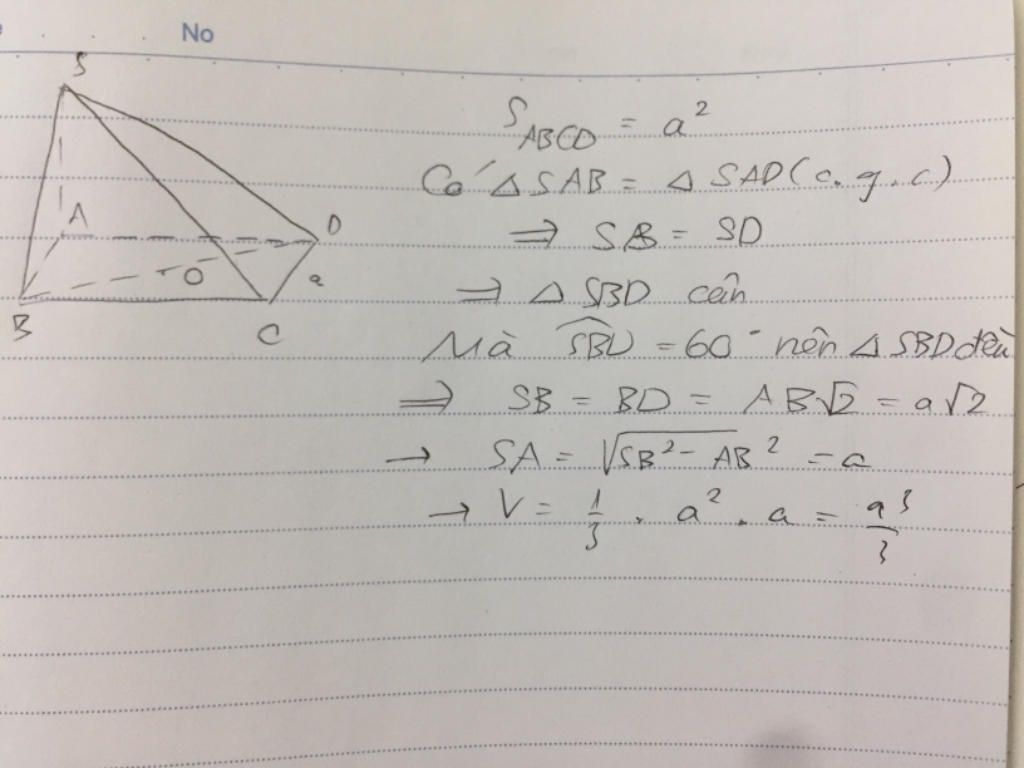 No
S
A
D
O
a
B
C
S_ABCD = a²
Có △SAB = △SAD (c.g.c)
⇒ SB = SD
⇒ △SBD cân
Mà SBD = 60° nên △SBD đều
⇒ SB = BD = AB√2 = a√2
→ SA = √SB² - AB² = a
→ V = 1/3 . a² . a = a³/3